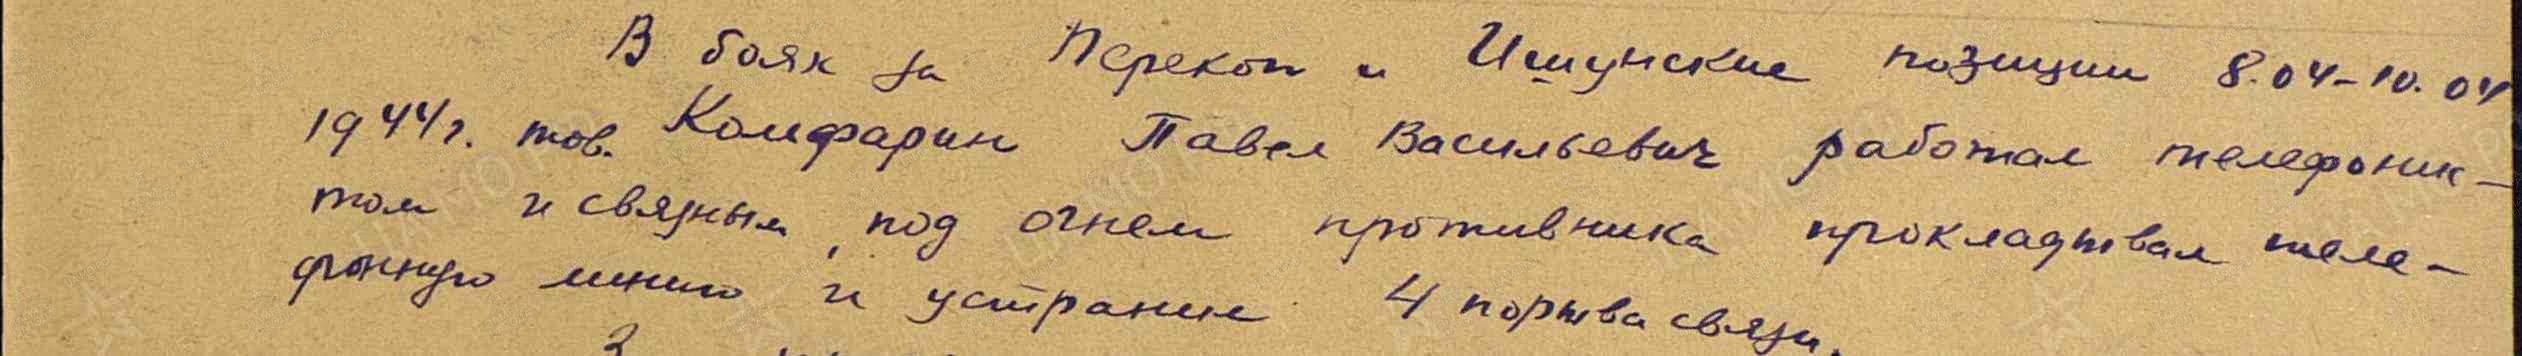 В боях за Перекоп и Ишунские позиции 8.04-10.04
1944г. тов. Камфарин Павел Васильевич работал телефонис-
том и связным, под огнем противника прокладывал теле-
фонную линию и устранил 4 порыва связи.